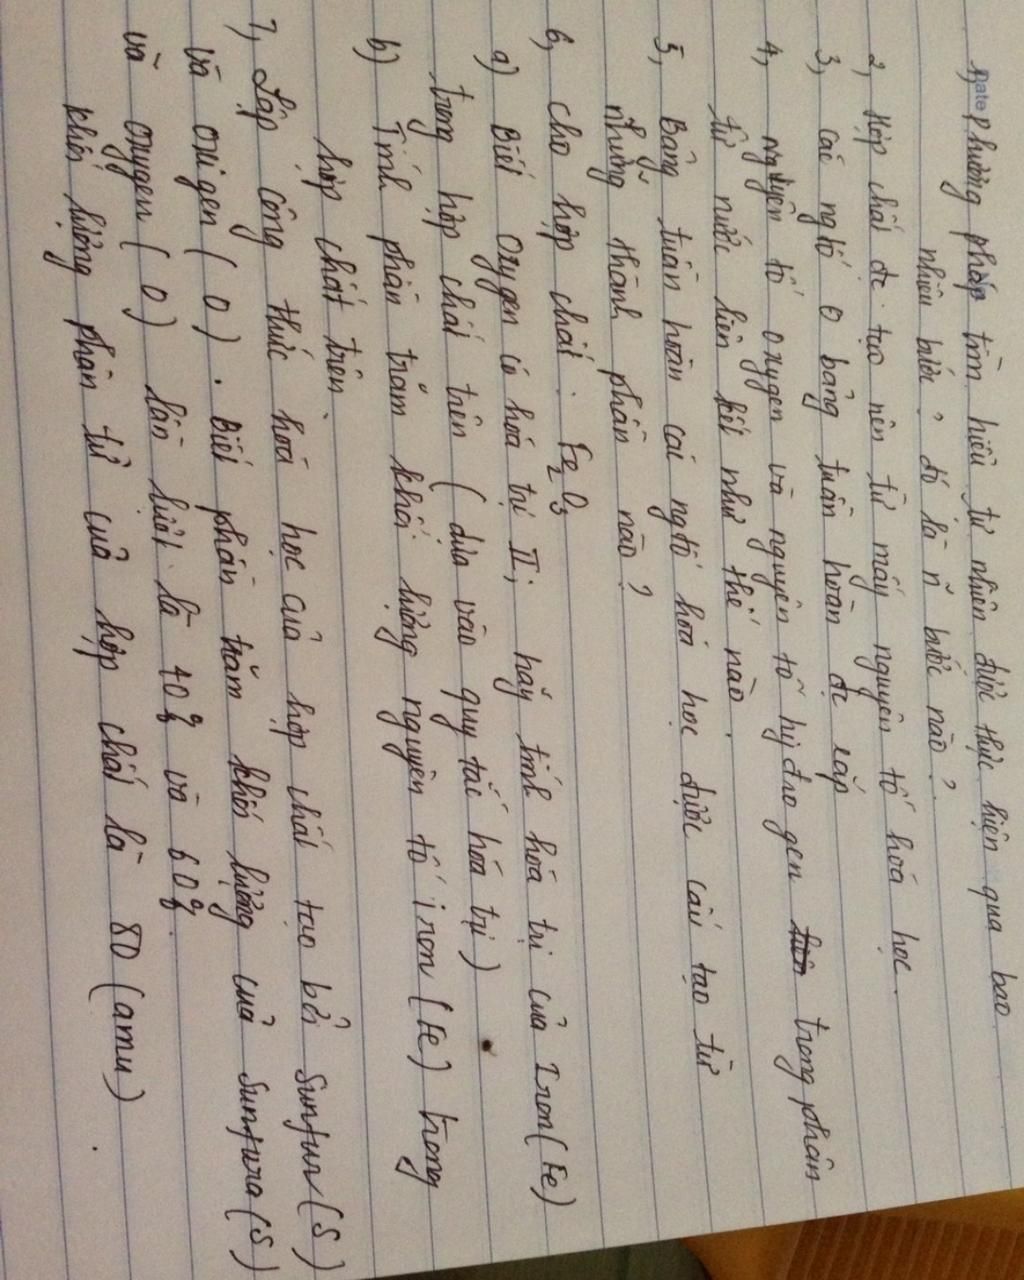 Date
1, Phường pháp tìm hiểu tự nhiên được thực hiện qua bao
nhiêu bước? đó là n~ bước nào?
2, Hợp chất đc tạo nên từ mấy nguyên tố hoá học.
3, các ngtố ở bảng tuần hoàn đc xắp
4, nguyên tố oxygen và nguyên tố hiđrogen trong phân
tử nước liên kết như thế nào.
5, Bảng tuần hoàn các ngtố hoá học được cấu tạo từ
những thành phần nào?
6, cho hợp chất: Fe2O3
a) Biết Oxygen có hoá trị II, hãy tính hoá trị của Iron(Fe)
trong hợp chất trên (dựa vào quy tắc hóa trị)
b) Tính phần trăm khối lượng nguyên tố iron(Fe) trong
hợp chất trên.
7, Lập công thức hoá học của hợp chất tạo bởi Sunfur(S)
và oxigen(O). Biết phần trăm khối lượng của Sunfura(S)
và Oxygen(O) lần lượt là 40% và 60%.
khối lượng phân tử của hợp chất là 80(amu)